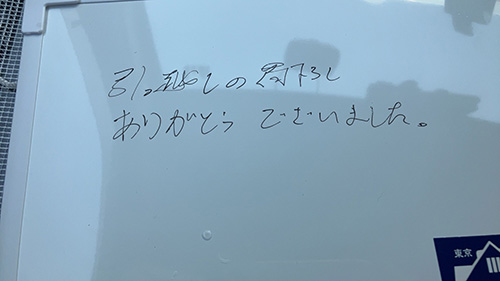 引っ越しの荷下ろし
ありがとう ございました。
東京